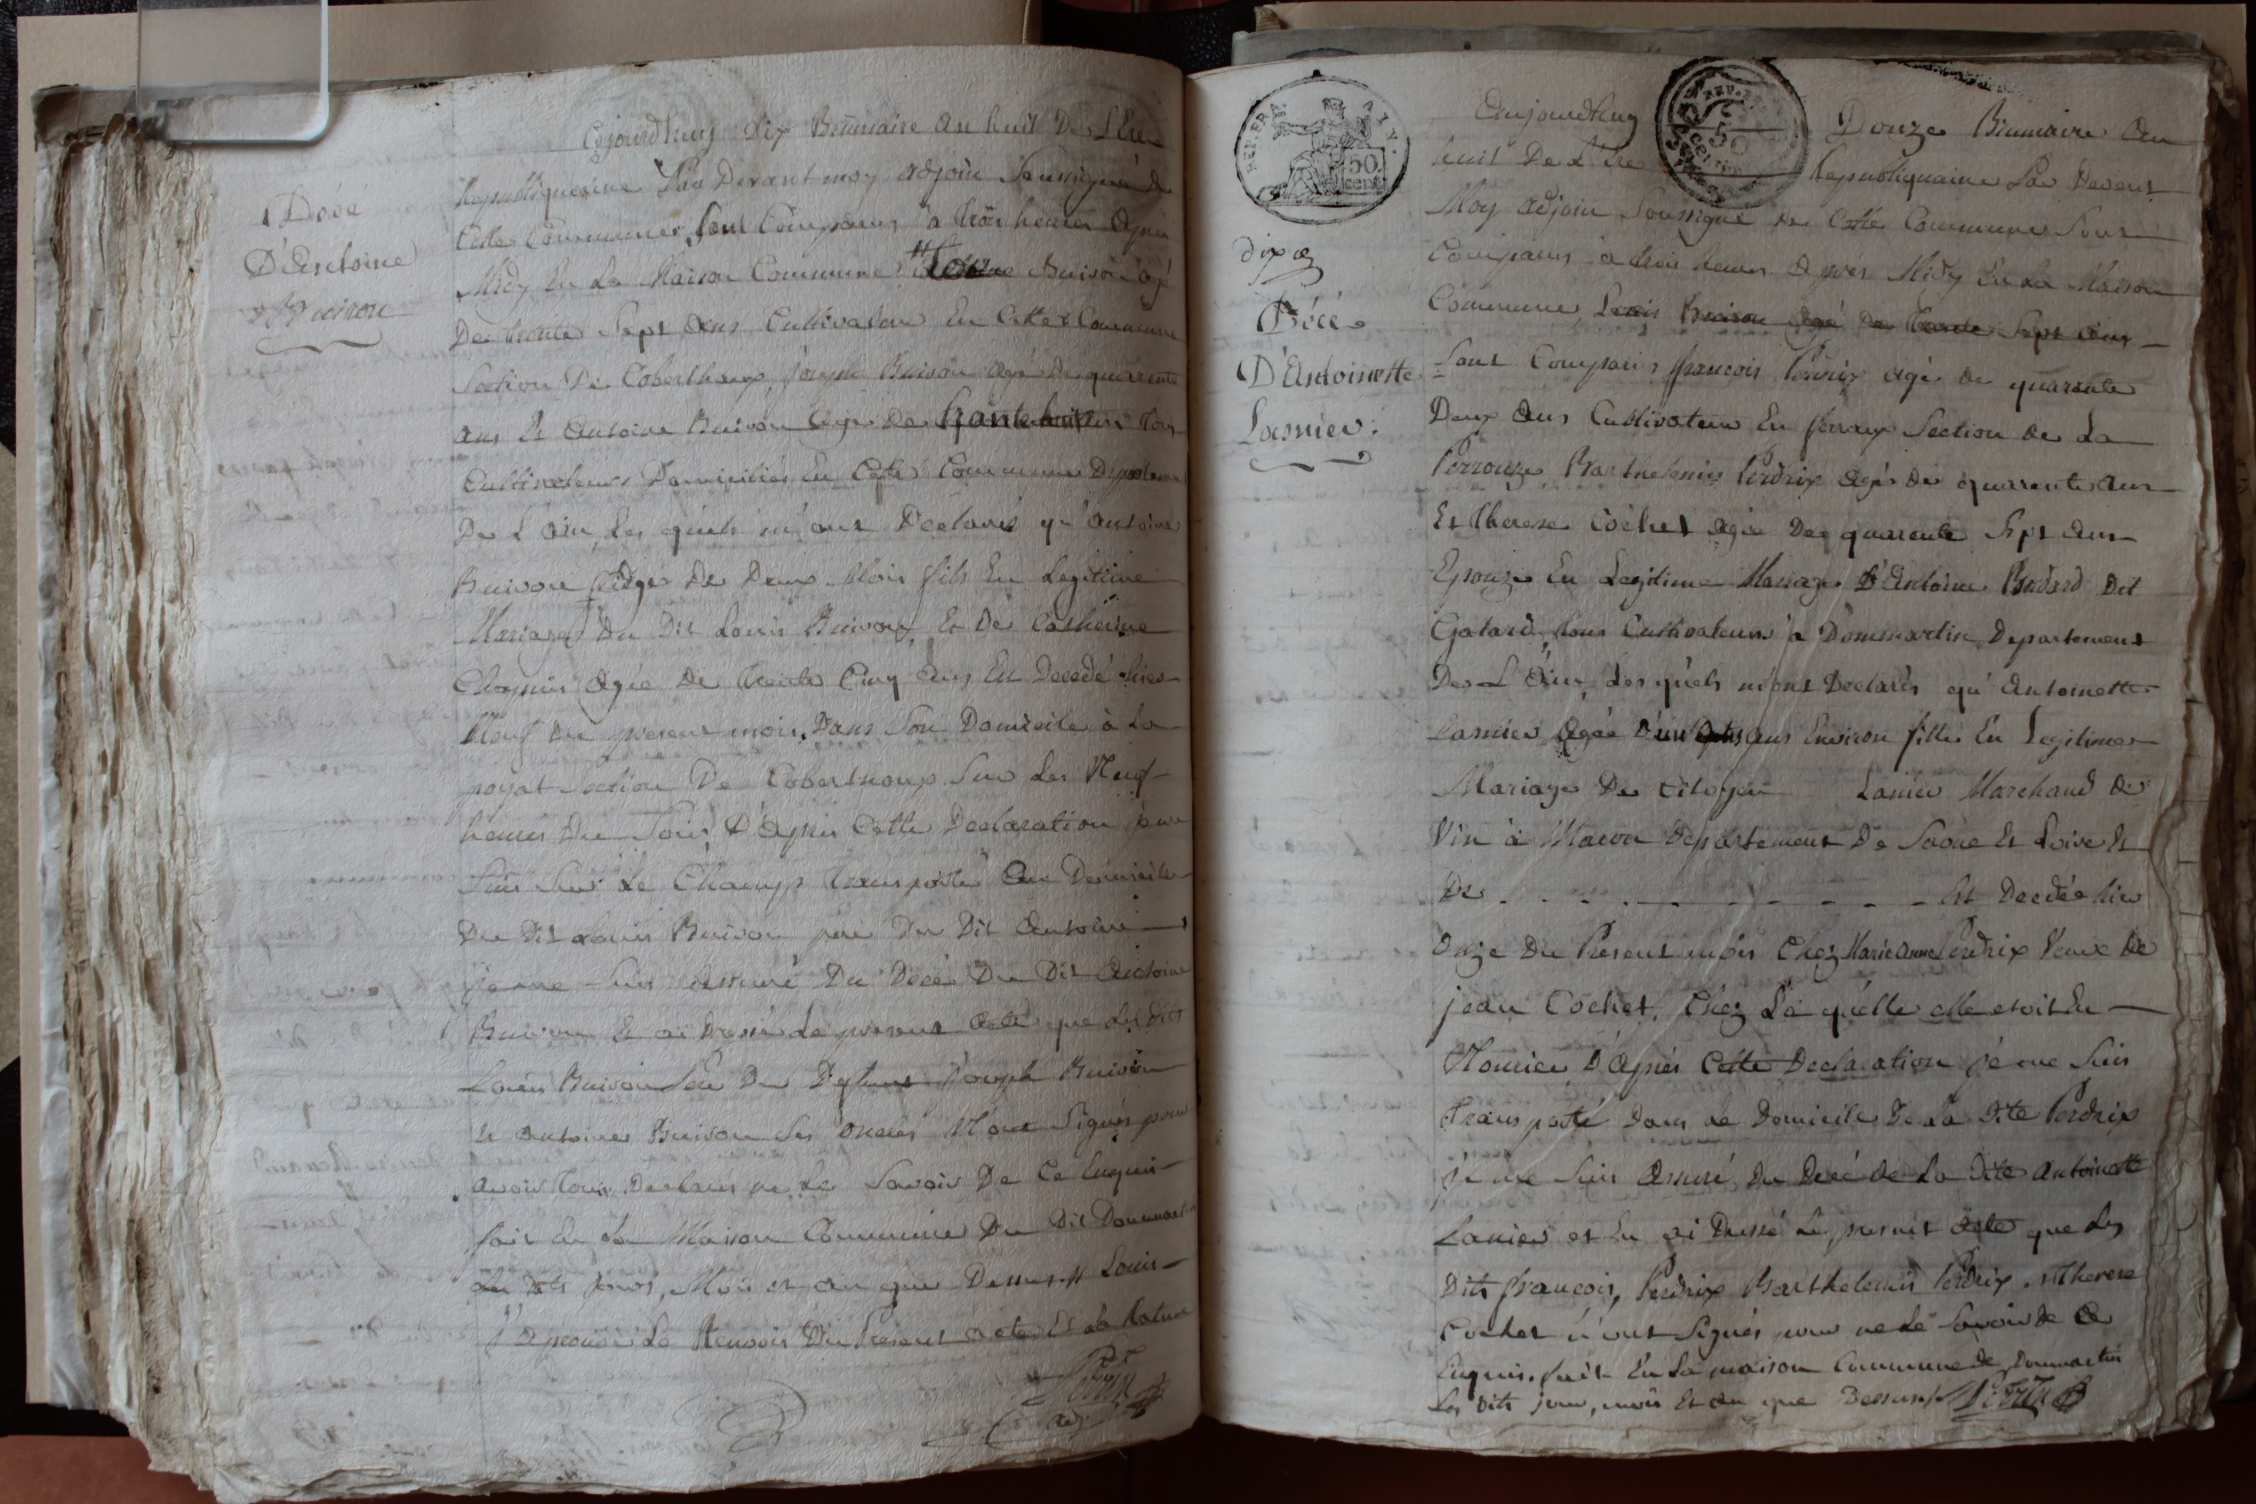 Décé
D'Antoine
Buison
Ajourdhuy dix Brumaire an huit De L'Ere
Republiquaine Par Devant moy adjoin Soussigné de
Cette Commune, sont Comparus a trois heures Apres
Midy En La Maison Commune # Buison agé
De trente Sept ans Cultivateur En Cette Commune
Section De Coberthoux, joseph Buison agé de quarente
ans Et Antoine Buison Agé De trante huit ans tous
Cultivateurs Domiciliés En Cette Commune Departement
De L'ain, Les quels m'ont Declarés qu'antoine
Buison Adgé de Deux Mois fils En Legitime
Mariage Du Dit Louis Buison, Et De Catherine
agée De trente Cinq ans Est Decedé hier
Neuf du present mois, Dans Son Domicile à La
poyat Section De Coberthoux Sur Les Neuf
heures Du Soir, D'Apres Cette Declaration je me
Suis Sur Le Champ transporté Au Domicile
Du Dit Louis Buison pere Du Dit Antoine
je me Suis assuré Du Décé Du Dit Antoine
Buison Et ai Dressé Le present acte que Les dits
Louis Buison Pere Du Defunt joseph Buison
Et antoine Buison Ses oncles N'ont Signés pour
avoir tous Declarés ne Le Savoir De Ce Enquis
fait En La Maison Commune Du Dit Dommartin
Les dits jours, Mois et an que Dessus # Louis
J'aprouve Le Renvois Du Present acte Et La Rature
REP. FRA.
50 cent.
dix
Décé
D'Antoinette
Lasnier.
Aujourdhuy Douze Brumaire An
huit De L'Ere Republiquaine Par Devant
Moy adjoin Soussigné De Cette Commune Sont
Comparus à trois heures Apres Midy En La Maison
Commune Louis Buison Agé De trente Sept ans
Sont Comparus francois Perdrix agé de quarante
Deux Ans Cultivateur En Section De La
Perrouze, Barthelemis Perdrix agé De quarente ans
Et Therese Cochet agée De quarente Sept ans
Epouze En Legitime Mariage D'Antoine Budard Dit
Gatard, tous Cultivateurs à Dommartin Departement
De L'Ain, Les quels m'ont Declarés qu'Antoinette
Lanier Agée D'un ans Environ fille En Legitime
Mariage De Citoyen Lanier Marchand De
Vin à Macon Departement De Saone Et Loire Et
De . . . . Est Decedée hier
Onze Du Present mois Chez Marie anne Perdrix Veuve De
jean Cochet, Chez La quelle elle etoit En
Nourice D'Apres Cette Declaration je me Suis
transporté Dans Le Domicile De La Dite Perdrix
je me Suis assuré du Decé de La Dite Antoinette
Lanier et En ai Dressé Le present acte que Les
Dits francois, Perdrix Barthelemis Perdrix, Et Therese
Cochet n'ont Signés pour ne Le Savoir de Ce
Enquis. fait En La maison Commune de Dommartin
Les Dits jour, mois Et an que Dessus